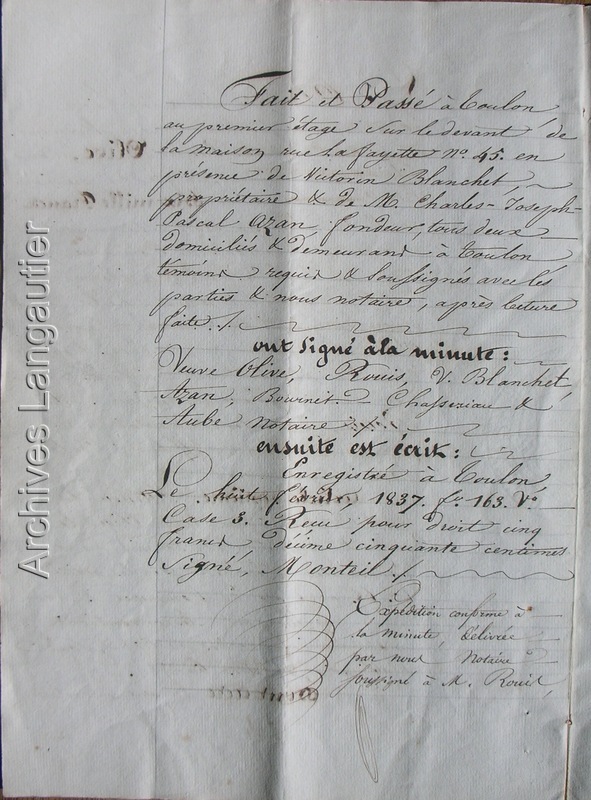 Fait et Passé à Toulon
au premier étage sur le devant de
la maison, rue La fayette N° 45. en
présence de Victorin Blanchet,
propriétaire & de M. Charles-Joseph-
Pascal Azan, fondeur, tous deux
domiciliés & demeurans à Toulon
témoins requis & soussignés avec les
parties & nous notaire, après lecture
faite ./.
ont signé à la minute :
Veuve Olive, Rouis, V. Blanchet,
Azan, Bournet. Chasseriau &
Aube Notaire ./.
ensuite est écrit :
Enregistré à Toulon,
Le huit février, 1837. f° 163. V°
Case 3. Recu pour droit cinq
francs décime cinquante centimes
Signé, Monteil ./.
Expédition conforme à
la minute, délivrée
par nous Notaire
soussigné à M. Rouis,
Archives Langautier